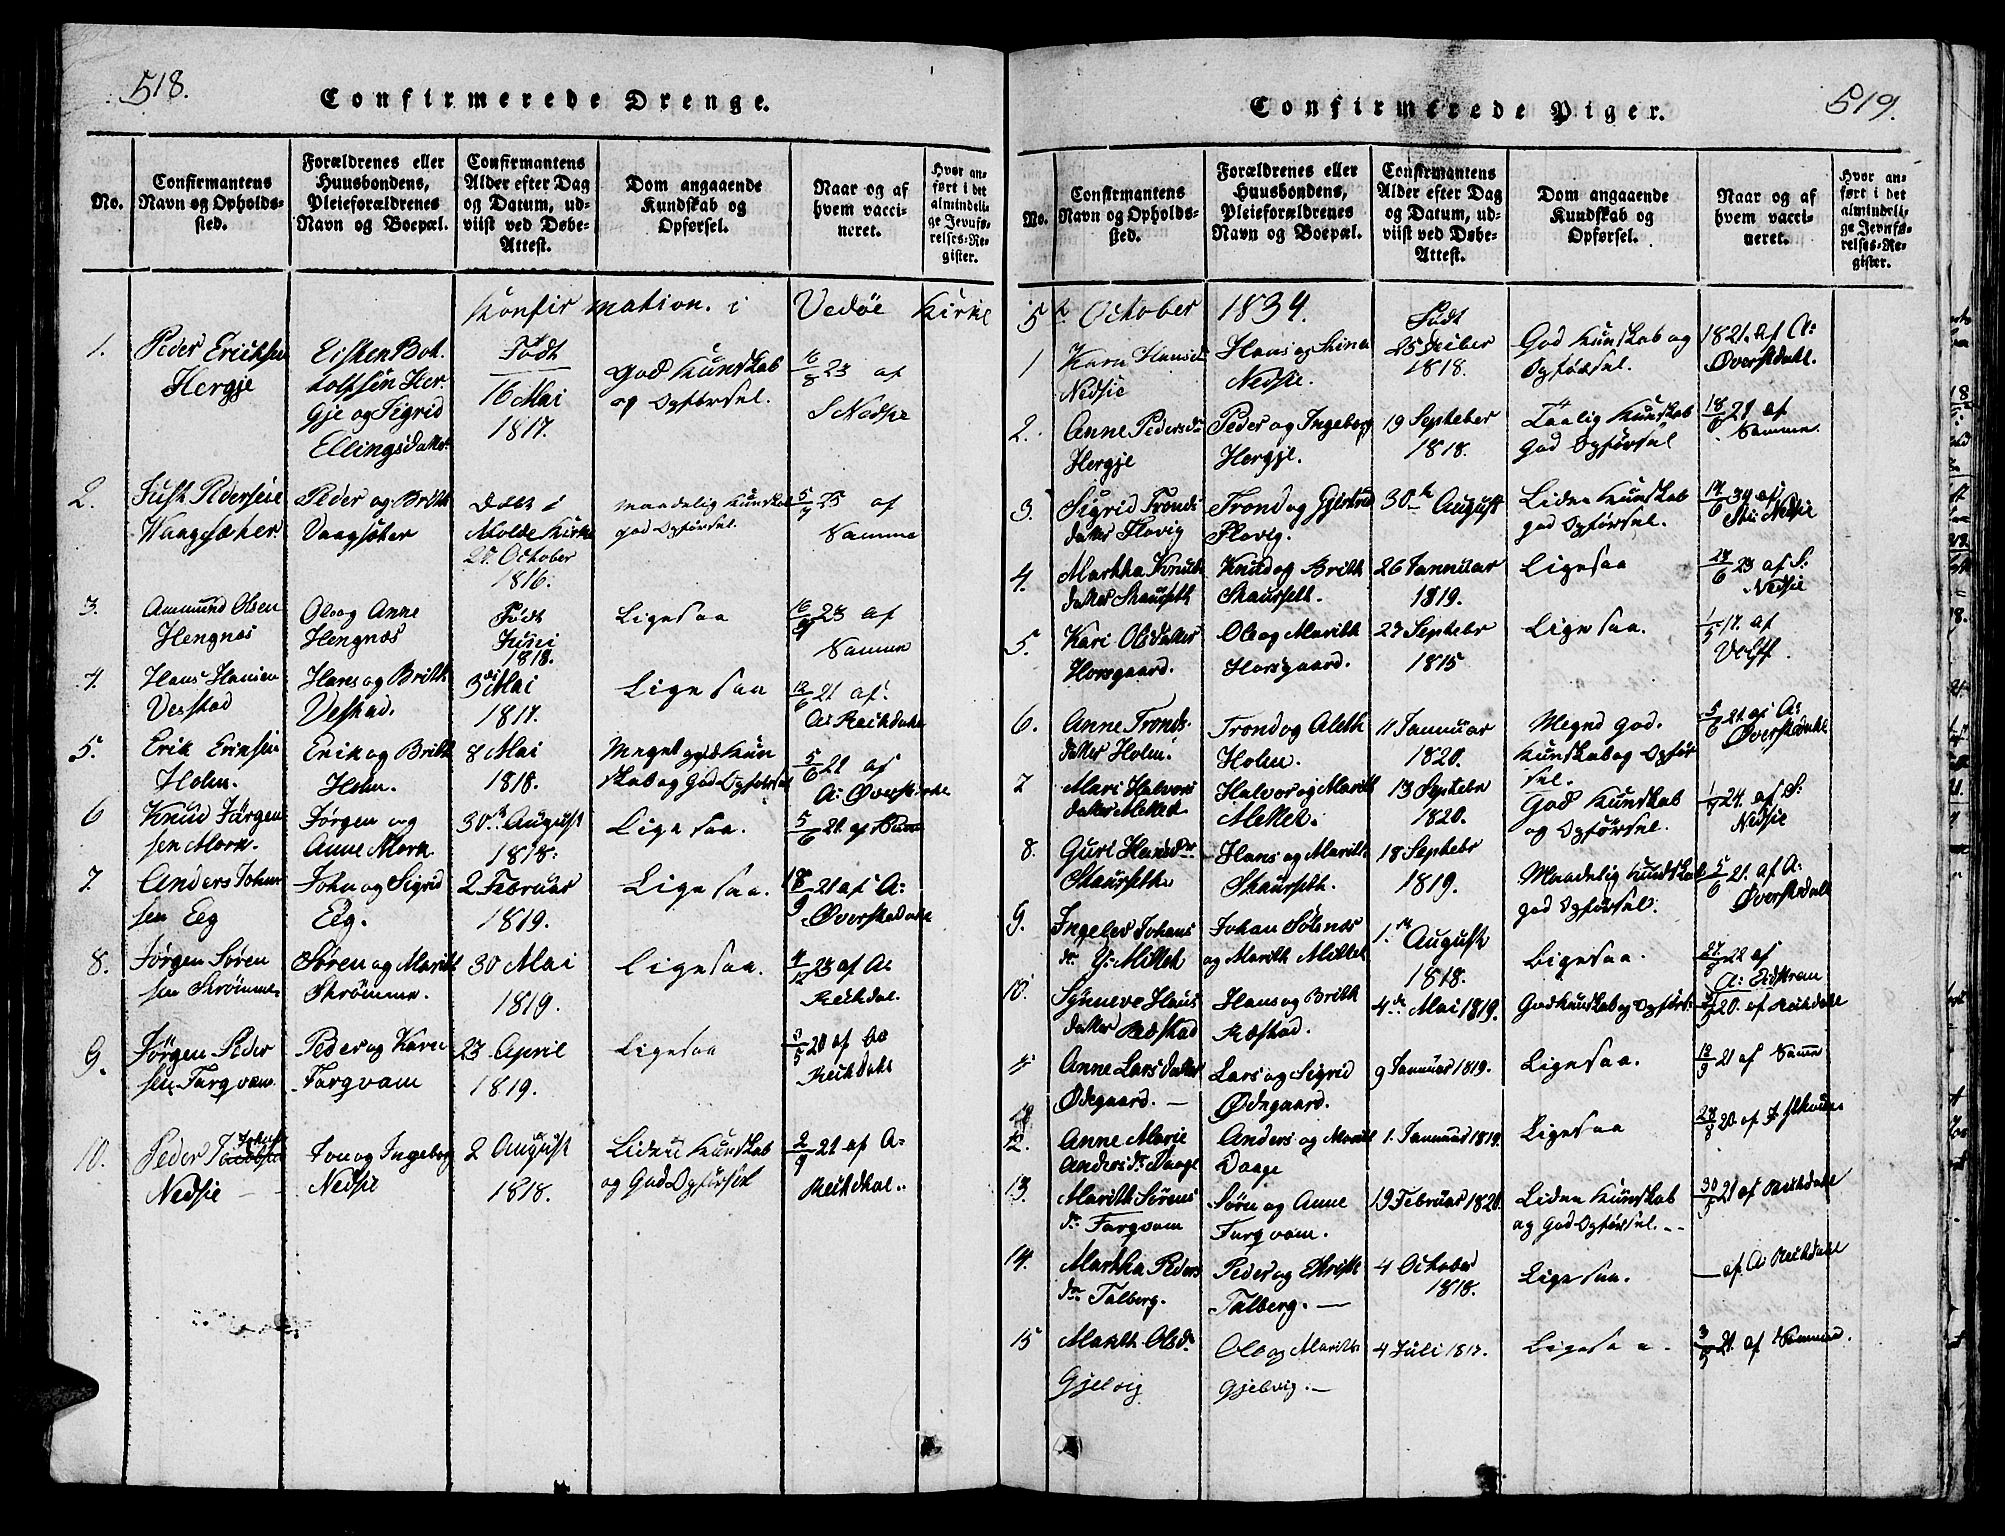 518.
Confirmerede Drenge.
No.
Confirmantens
Navn og Opholds-
sted.
Forældrenes eller
Huusbondens,
Pleieforældrenes
Navn og Boepæl.
Confirmantens
Alder efter Dag
og Datum, ud-
viist ved Døbe-
Attest.
Dom angaaende
Kundskab og
Opførsel.
Naar og af
hvem vacci-
neret.
Hvor an-
ført i det
almindeli-
ge Jevnfø-
relses-Re-
gister.
Konfirmation. i Vedøe Kirke
1.
Peder Erichsen
Hergje
Eisten Bot.
tolfsen Her
gje og Sigrid
Ellingsdatter
Født
16 Mai
1817.
God Kundskab
og Opførsel.
16/8 23 af
S Nedsie
2.
Just Pedersen
Vaagsæther
Peder og Brith
Vaagsæter
Døbt i
Molde Kirke
27 October
1816.
Maadelig Kundskab
god Opførsel.
5/7 25 af
Samme
3.
Ammund Olsen
Hengnæs
Ole og Anne
Hengnæs
Født
Juni
1818.
Ligesaa
23 af
Samme
4.
Hans Hansen
Vestad
Hans og Brith
Vestad.
3die Mai
1817.
Ligesaa
12/6 21 af
A: Reitdahl
5.
Erik Eriksen
Holm.
Erik og Brith
Holm.
8 Mai
1818.
Meget god Kun
skab og God Opførsel
5/6 21 af
A: Øverstedahl
6
Knud Jørgen
sen Mork.
Jørgen og
Anne Mork
30te August
1818.
Ligesaa.
5/6 21 af Samme
7.
Anders John
sen Eeg
John og Sigrid
Eeg.
2 Februar
1819.
Ligesaa.
18/9 21 af A:
Øverstedahl
8.
Jørgen Søren
sen Strømme.
Søren og Marith
Strømme.
30 Mai
1819.
Ligesaa.
23 af A:
Reitdal.
9.
Jørgen Peder
sen Fargvam.
Peder og Karn
Fargvam
23 April
1819.
Ligesaa
20 af A:
Reitdahl
10.
Peder Johns
Nedsie
Jon og Ingebor
Nedsie
2 August
1818.
Liden Kundskab
og God Opførsel
2/9 21 af A:
Reitdal.
519.
Confirmerede Piger.
No.
Confirmantens
Navn og Opholds-
sted.
Forældrenes eller
Huusbondens,
Pleieforældrenes
Navn og Boepæl.
Confirmantens
Alder efter Dag
og Datum, ud-
viist ved Døbe-
Attest.
Dom angaaende
Kundskab og
Opførsel.
Naar og af
hvem vacci-
neret.
Hvor an-
ført i det
almindeli-
ge Jevnfø-
relses-Re-
gister.
5te October 1834.
1
Karn Hansd.
Nedsie
Hans og Stina
Nedsie.
Født
25 Xeiber
1818.
God Kundskab og
Opførsel.
1821. af A:
Øverstdahl.
2.
Anne Pedersdr
Hergje
Peder og Ingeborg
Hergje.
19 Septeber
1818.
Taalig Kundskab
God Opførsel
18/6 21 af
Samme.
3.
Sigrid Tronds
datter Flovig
Trond og Gjertrud
Flovig.
30te August
Liden Kundskab
god Opførsel.
14/6 34 af
Nedsie
4.
Martha Knuds
datter Skaurseth
Knud og Brith
Skaurseth.
26 Januar
1819.
Ligesaa
24/6 23 af S:
Nedsie
5.
Kari Olsdatter
Horsgaard.
Ole og Marith
Horsgaard.
27 Septebr
1815
Ligesaa.
17 af
Volff.
6.
Anne Tronds.
datter Holm.
Trond og Aleth
Holm.
11 Januar
1820.
Meget God.
Kundskab og Opfør
sel.
5/6 21 af A:
Øverstedahl
7
Mari Halvors
datter Mellet.
Halvor og Marith
Mellet.
13 Septebr
1820.
God Kundskab
og Opførsel.
24. af S:
Nedsie
8.
Guri Hansdr
Skaurseth
Hans og Marith
Skaurseth.
18 Septebr
1819.
Maadelig Kundskab
god Opførsel.
5/6 21. af A:
Øverstedahl
9.
Ingeber Johans
dr Y: Mittet
Johan Solenes
og Marith Mittet
1.ste August
1818.
Ligesaa.
27/8 22 af
A: Eidskrem
10.
Synneve Hans
datter Ræstad
Hans og Brith
Ræstad.
4de Mai 1819.
God Kundskab og Opførs:
20. af Reitdahl
Anne Larsdatter
Ødegaard. —
Lars og Sigrid
Ødegaard.
9 Januar 1819.
Ligesaa.
12/9 21 af Samme
12.
Anne Marie
Andersdr Daage
Anders og Marith
Daage
1. Januar 1819.
Ligesaa
28/8 20 af
13.
Marith Sørens
dr Fargvam
Sørn og Anne
Fargvam.
19 Februar 1820.
Liden Kundskab
og God Opførsel. --
21 af Reitdahl
14.
Martha Peders
dr Talberg.
Peder og
Talberg. —
4 October
1818.
Ligesaa.
— af A: Reitdahl
15
Marith Olsdr
Gjelvig
Ole og Marith
Gjelvig. —
4 Juli 1817.
Ligesaa.
21. af Samme.